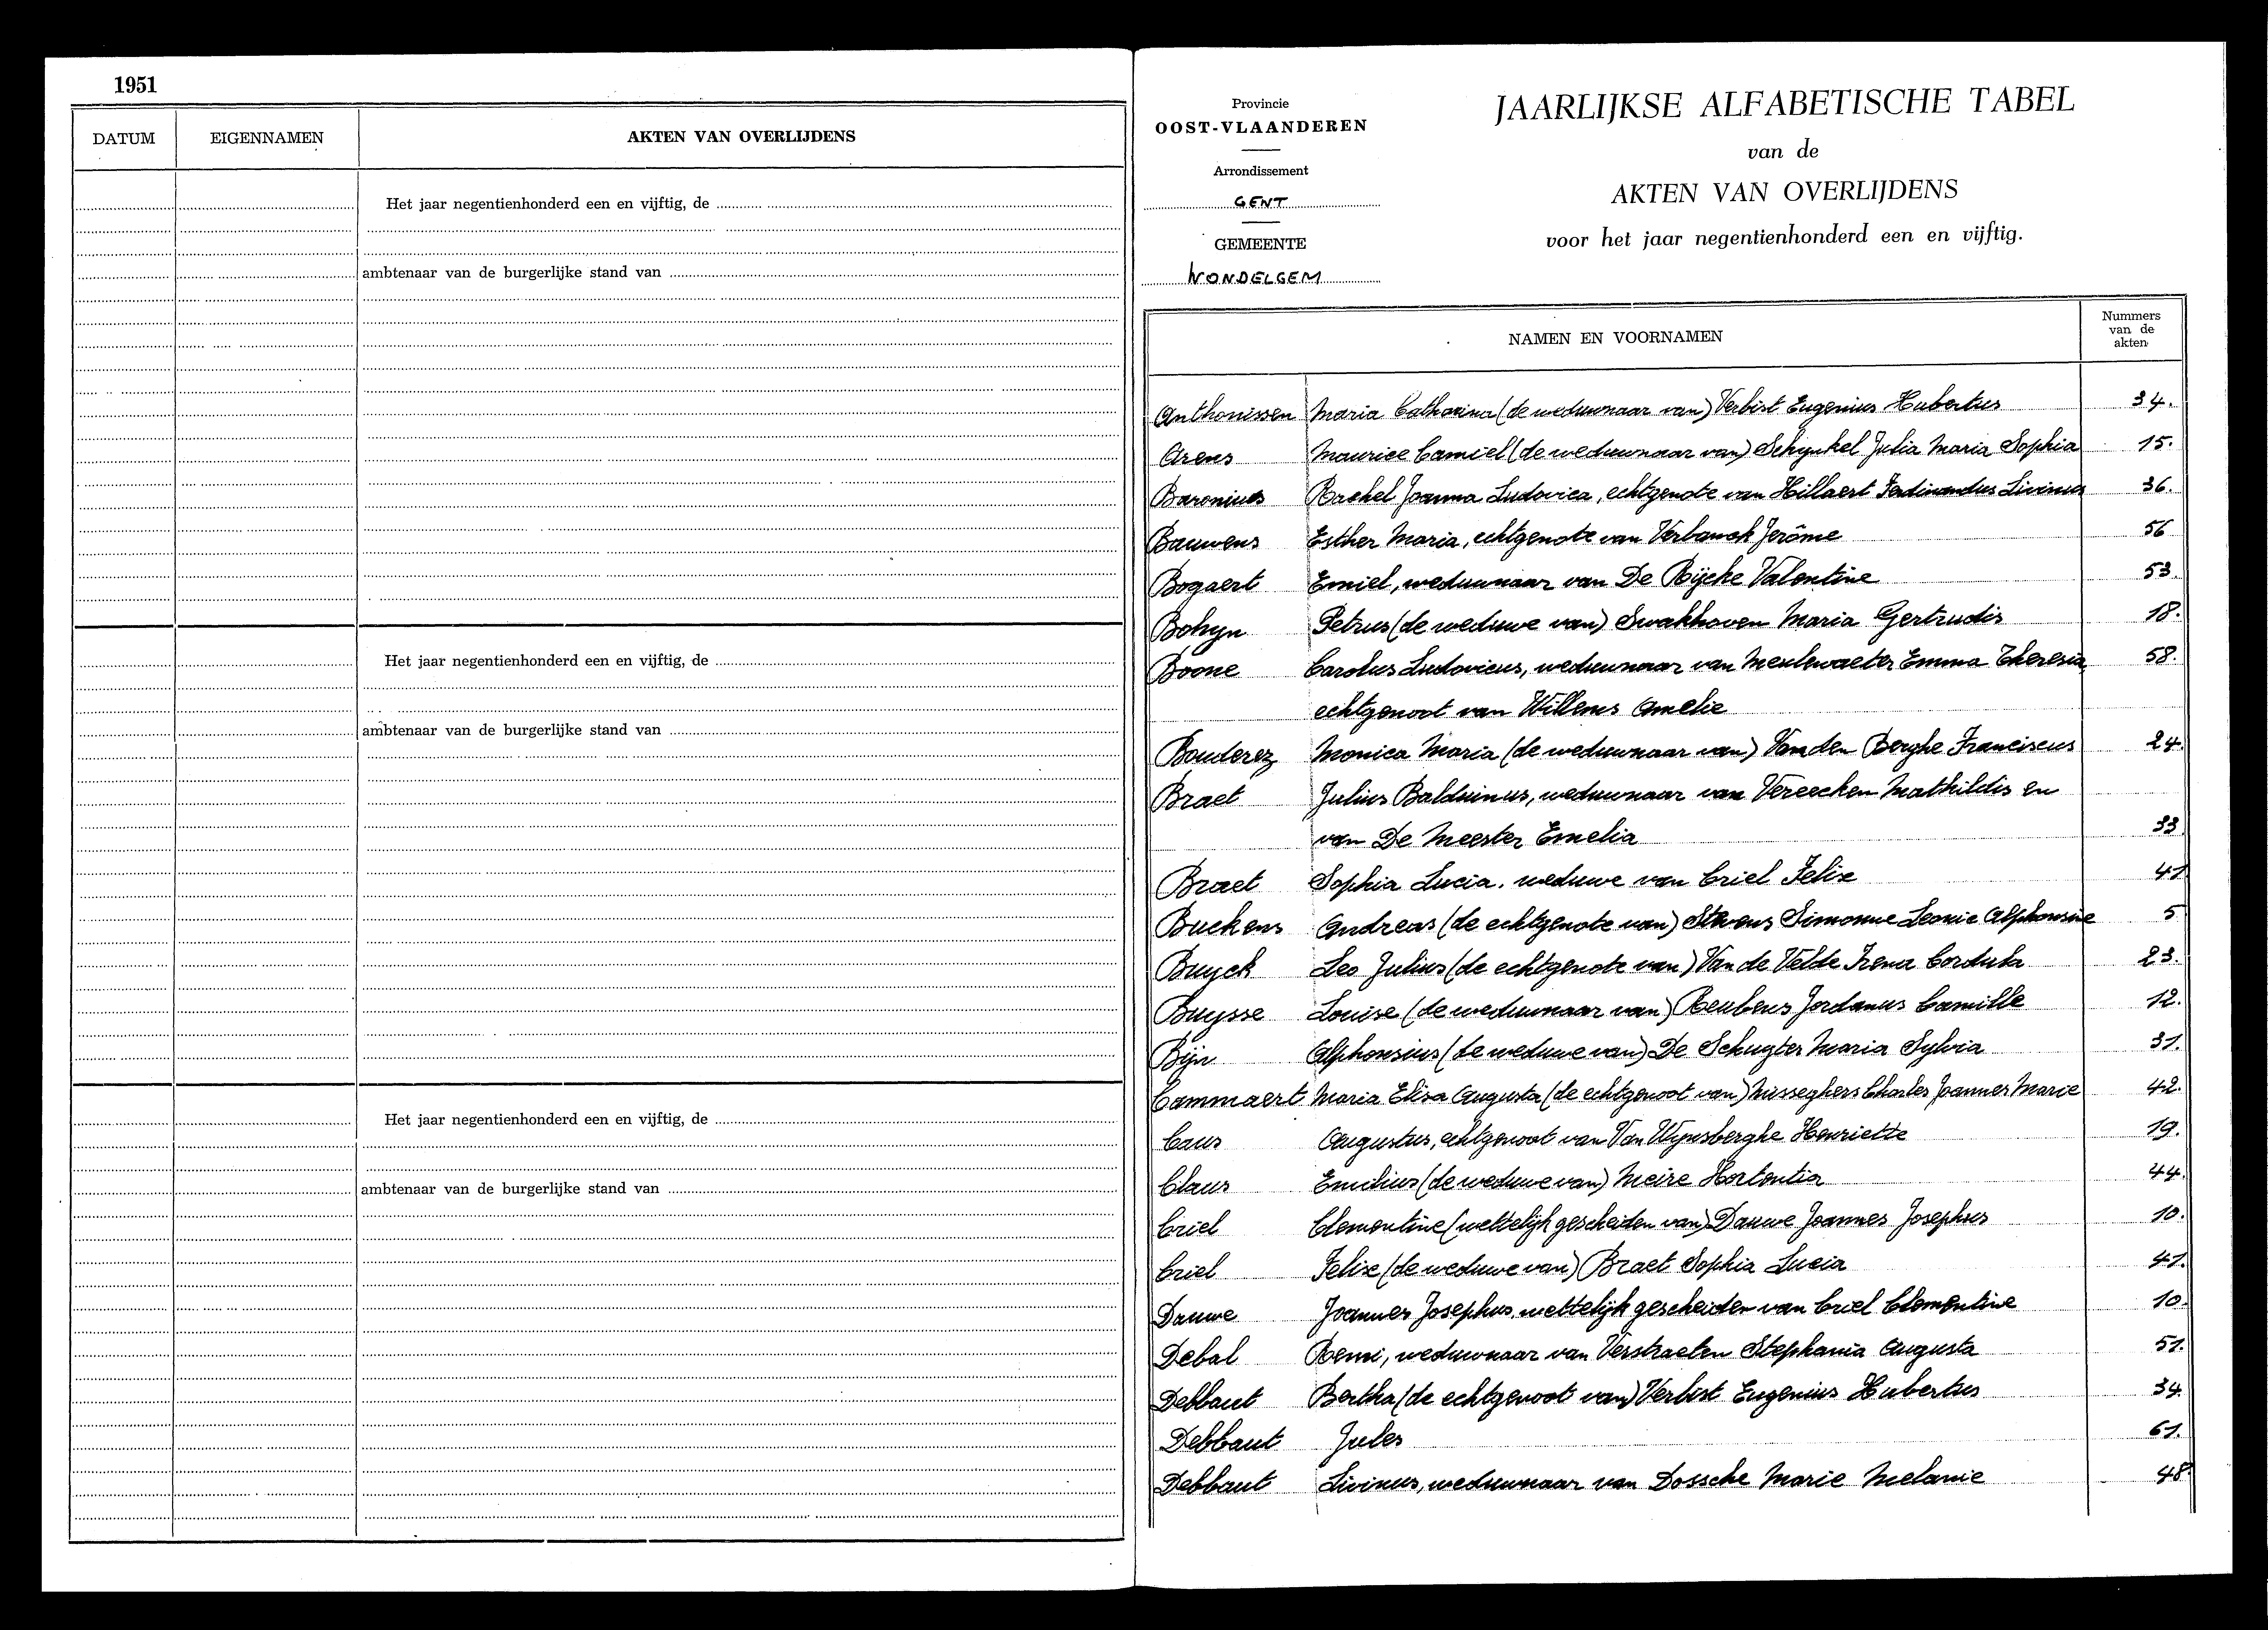 1951
DATUM EIGENNAMEN AKTEN VAN OVERLIJDENS
Het jaar negentienhonderd een en vijftig, de
ambtenaar van de burgerlijke stand van
Het jaar negentienhonderd een en vijftig, de
ambtenaar van de burgerlijke stand van
Het jaar negentienhonderd een en vijftig, de
ambtenaar van de burgerlijke stand van
Provincie
OOST-VLAANDEREN
Arrondissement
GENT
GEMEENTE
WONDELGEM
JAARLIJKSE ALFABETISCHE TABEL
van de
AKTEN VAN OVERLIJDENS
voor het jaar negentienhonderd een en vijftig.
NAMEN EN VOORNAMEN
Nummers
van de
akten
Anthonissen Maria Catharina (de weduwnaar van) Verbist Eugenius Hubertus 34.
Arens Maurice Camiel (de weduwnaar van) Schynkel Julia Maria Sophia 15.
Baronius Rachel Joanna Ludovica, echtgenote van Hillaert Ferdinandus Livinus 36.
Bauwens Esther Maria, echtgenote van Verbanck Jerôme 56
Bogaert Emiel, weduwnaar van De Rijcke Valentine 53.
Bohyn Petrus (de weduwe van) Swakhoven Maria Gertrudis 18.
Boone Carolus Ludovicus, weduwnaar van Meulewaeter Emma Theresia, 58.
echtgenoot van Willems Amelie
Bouderez Monica Maria (de weduwnaar van) Van den Berghe Franciscus 24.
Braet Julius Balduinus, weduwnaar van Vereecken Mathildis en
van De Meester Emelia 33
Braet Sophia Lucia, weduwe van Criel Felix 41
Buckens Andreas (de echtgenote van) Stevens Simonne Leonie Alphonsine 5
Buyck Leo Julius (de echtgenote van) Van de Velde Irena Cordula 23.
Buysse Louise (de weduwnaar van) Reubens Jordanus Camille 12.
Bijn Alphonsius (de weduwe van) De Schuyter Maria Sylvia 31.
Cammaert Maria Elisa Augusta (de echtgenoot van) Musseghers Charles Joannes Marie 42.
Caus Augustus, echtgenoot van Van Wynsberghe Henriette 19.
Claus Emilius (de weduwe van) Meire Hortentia 44.
Criel Clementine (wettelijk gescheiden van) Dauwe Joannes Josephus 10.
Criel Felix (de weduwe van) Braet Sophia Lucia 41.
Dauwe Joannes Josephus, wettelijk gescheiden van Criel Clementine 10.
Debal Remi, weduwnaar van Verstraeten Stephania Augusta 51.
Debbaut Bertha (de echtgenoot van) Verbist Eugenius Hubertus 34.
Debbaut Jules 61.
Debbaut Livinus, weduwnaar van Dossche Marie Melanie 48.